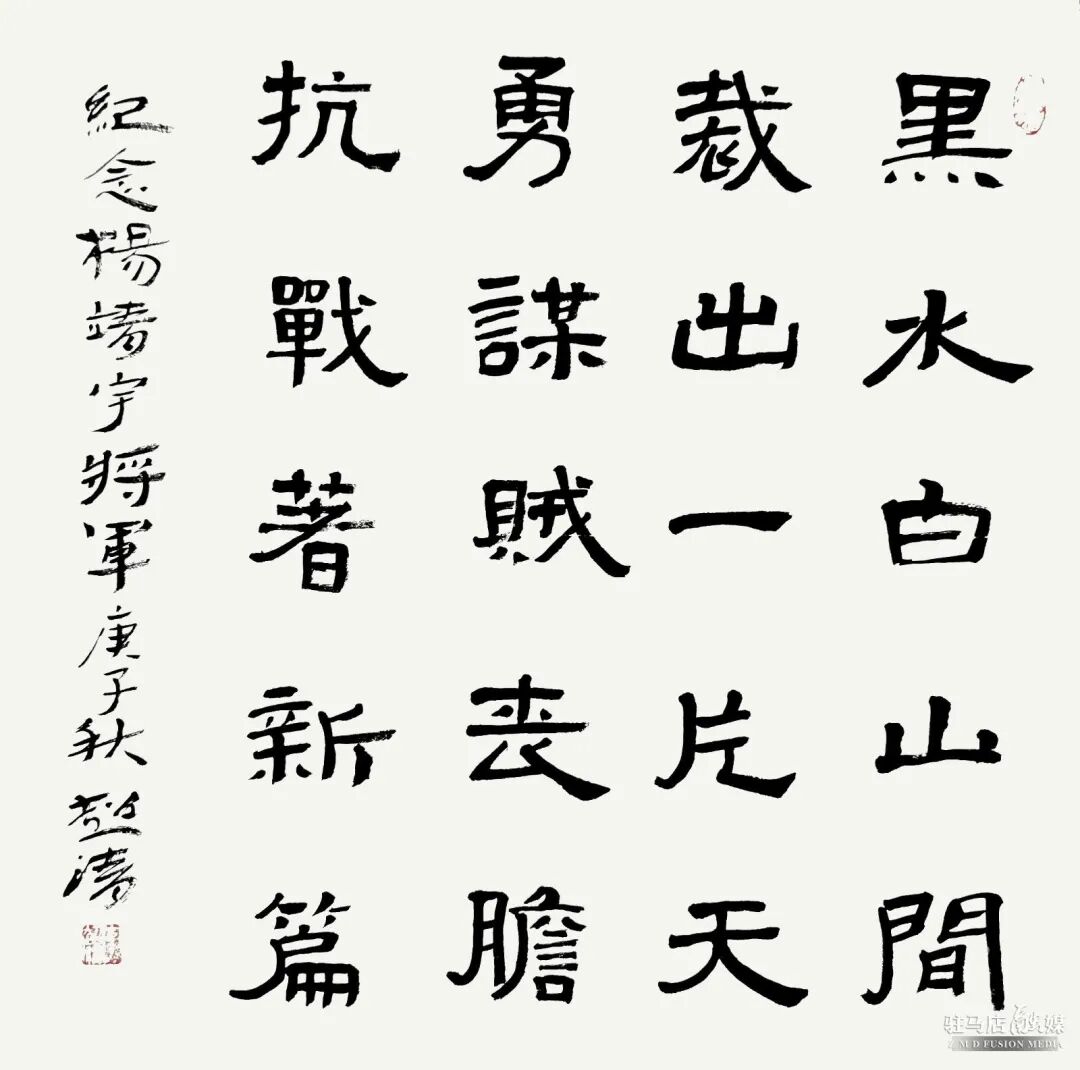 黑水白山間
裁出一片天
勇謀賊丧膽
抗戰著新篇
紀念楊靖宇將軍庚子秋趙濤
驻马店融媒
ZMD FUSION MEDIA